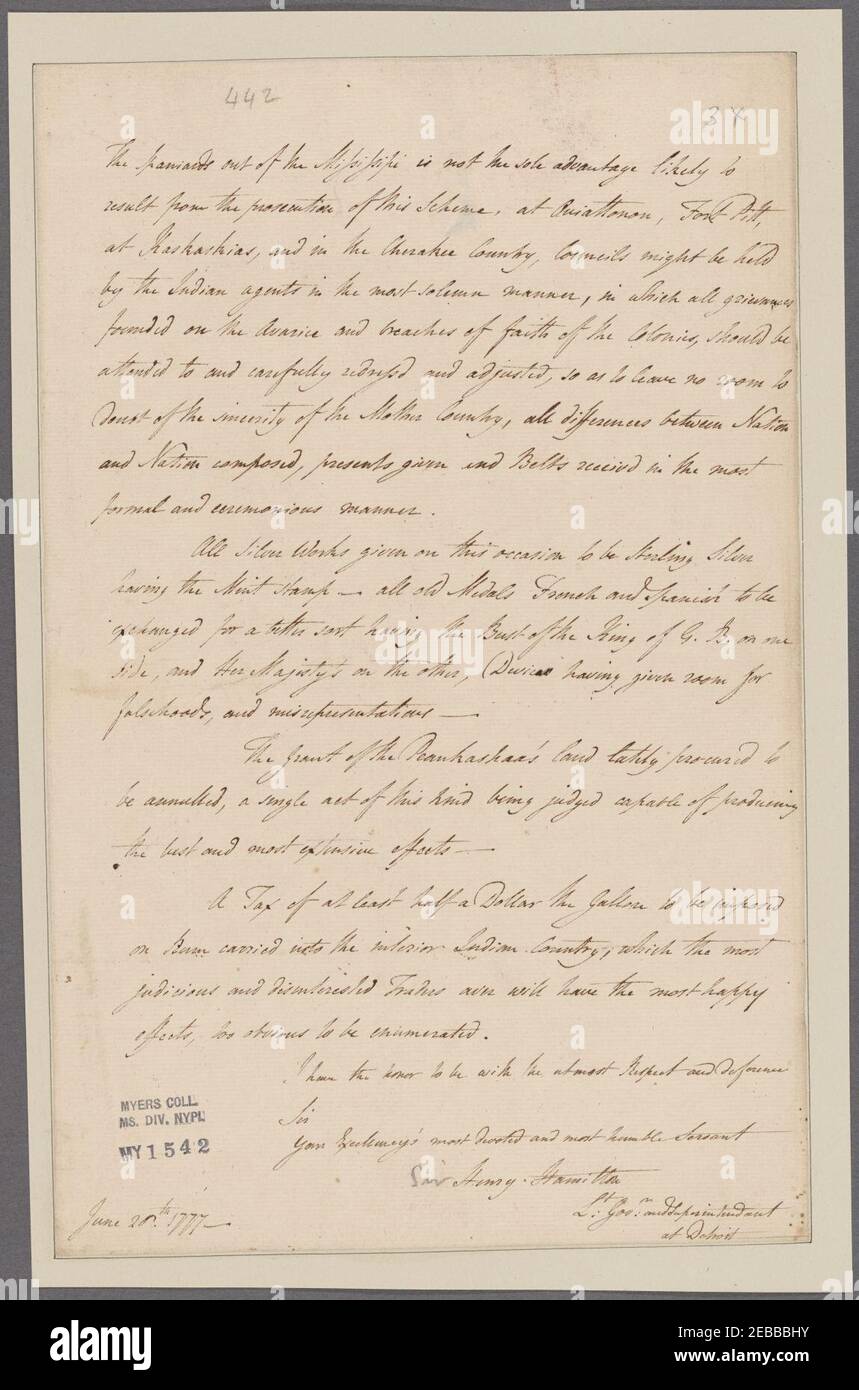 442
3X
The Spaniards out of the Missisippi is not the sole advantage likely to
result from the prosecution of this Scheme, at Ouiattonon, Fort Pitt,
at Kaskaskias, and in the Cherakee Country, Councils might be held
by the Indian agents in the most solemn manner, in which all grievances
founded on the avarice and breaches of faith of the Colonies, should be
attended to and carefully redress'd and adjusted, so as to leave no room to
doubt of the sincerity of the Mother Country, all differences between Nation
and Nation composed, presents given and Belts receivd in the most
formal and ceremonious manner.
All Silver Works given on this occasion to be Sterling Silver
having the Mint Stamp — all old Medals French and Spanish to be
exchanged for a better sort having the Bust of the King of G. B. on one
side, and Her Majesty's on the other, (Devices having given room for
falsehoods, and misrepresentations —
The grant of the Peankashaa's land lately procured to
be annulled, a single act of this kind being judged capable of producing
the best and most extensive effects —
A Tax of at least half a Dollar the Gallon to be imposed
on Rum carried into the interior Indian Country, which the most
judicious and disinterested Traders aver will have the most happy
effects, too obvious to be enumerated.
I have the honor to be with the utmost Respect and deference
Sir
Your Excellency's most devoted and most humble Servant
Henry Hamilton
Lt. Govn. and Superintendant
at Detroit
June 20th. 1777 —
MYERS COLL.
MS. DIV. NYPL
MY 1542
alamy
Image ID: 2EBBBHY
www.alamy.com